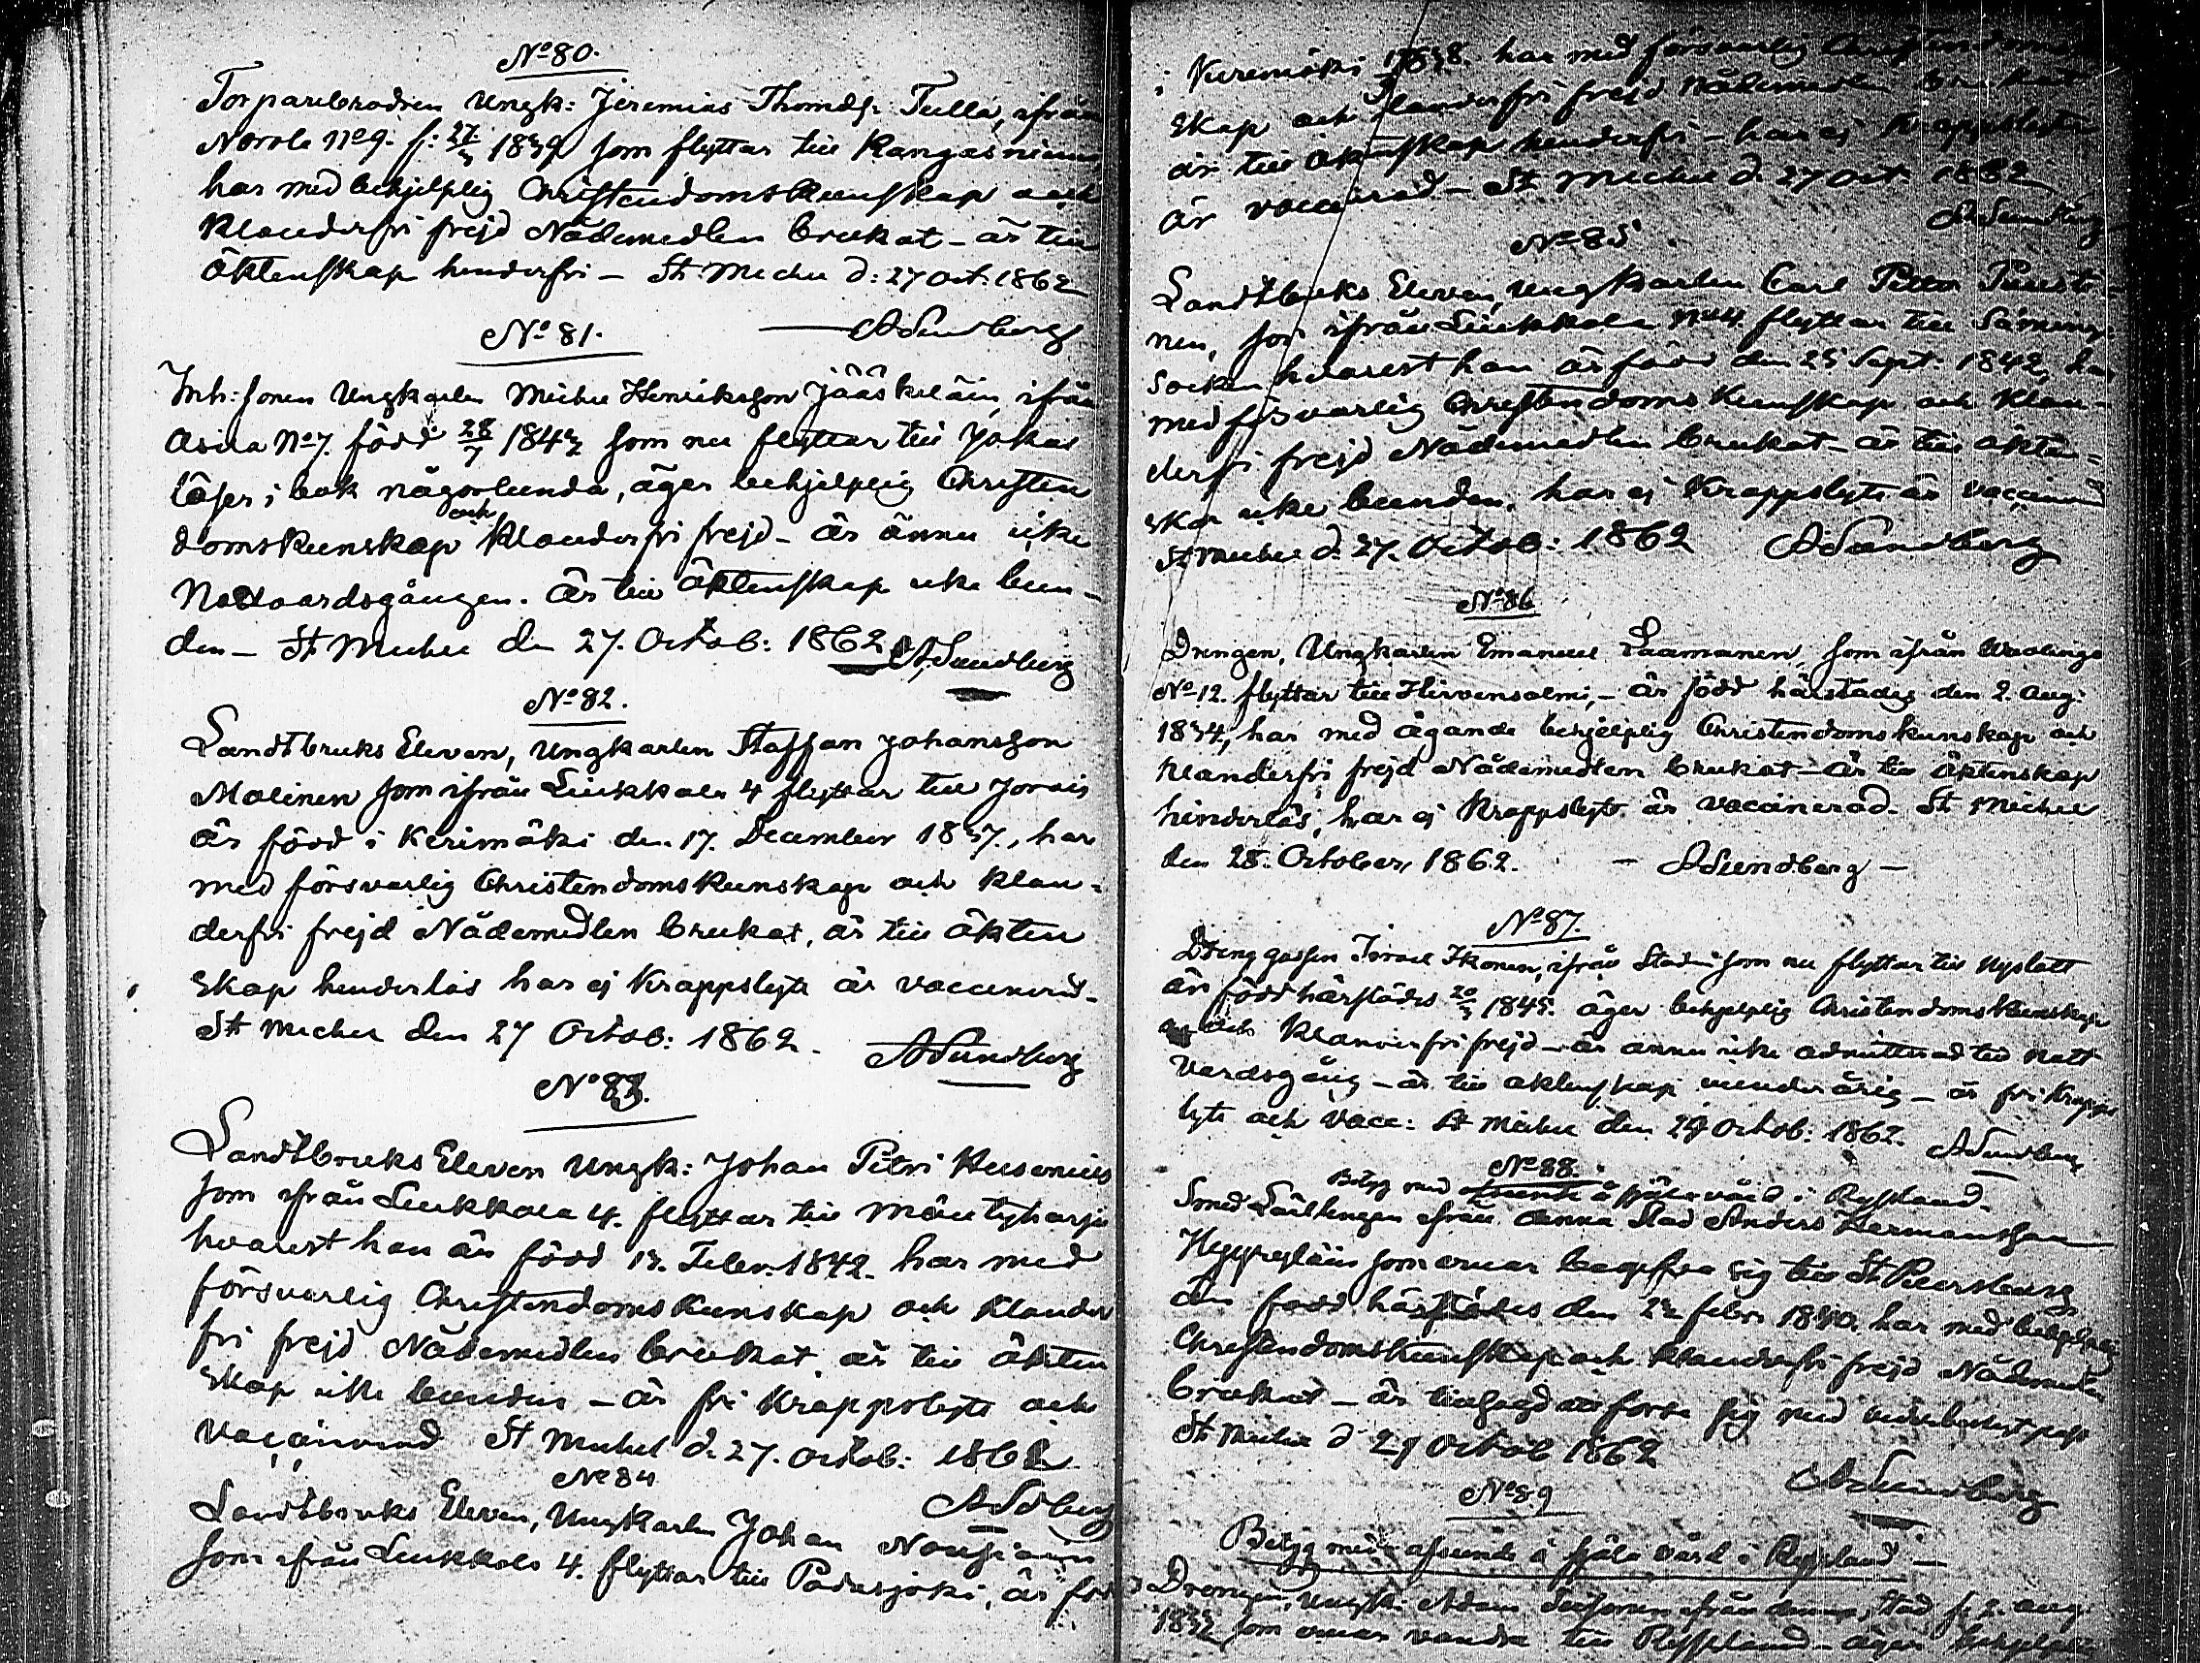 No 80.
Torparebrodren Ungk: Jeremias Thomass: Tulla, ifrån
Norola No 9. f: 27/3 1839 som flyttar till Kangasniemi
har med behjelplig Christendomskunskap och
klanderfri frejd Nådemedlen brukat – är till
Äktenskap hinderfri – St Michel d: 27 Oct: 1862
ASundberg
No 81.
Inh: sonen Ungkarlen Michel Henriksson Jääskeläin, ifrån
Asila No 7. född 28/7 1843 som nu flyttar till Jokas
läser i bok någorlunda, äger behjelplig Christen
domskunskap och klanderfri frejd – är ännu icke
Nattvardsgången. Är till Äktenskap icke bun-
den – St Michel den 27. Octob: 1862 ASundberg
No 82.
Landtbruks Eleven, Ungkarlen Staffan Johansson
Malinen som ifrån Liukkala 4 flyttar till Jorois
är född i Kerimäki den 17. December 1837., har
med försvarlig Christendomskunskap och klan-
derfri frejd Nådemedlen brukat, är till äkten
skap hinderlös har ej Kroppslyte är vaccinerad-
St Michel den 27 Octob: 1862. ASundberg
No 83.
Landtbruks Eleven Ungk: Johan Petri
som ifrån Liukkala 4. flyttar till Mäntyharju
hvarest han är född 13. Febr. 1842. har med
försvarlig Christendoms kunskap och klander
fri frejd Nådemedlen brukat är till äkten
skap icke bunden – är fri Kroppslyte och
vaccinerad St Michel d. 27. Octob: 1862
ASdberg
No 84
Landtbruks Eleven, Ungkarlen Johan Nousiain
som ifrån Liukkala 4. flyttar till Padasjoki, är född
i Kerimäki 1838. har med försvarlig Christendoms
skap och klanderfri frejd Nådemedlen brukat
är till äktenskap hinderfri – har ej Kroppslyte
är vaccinerad – St Michel d. 27 Oct. 1862
ASundberg
No 85.
Landtbruks Eleven, Ungkarlen Carl Petter Puusti-
nen, som ifrån Liukkala No 4. flyttar till Säminge
Socken hvarest han är född den 25 Sept. 1842, har
med försvarlig Christendoms Kunskap och Klan-
derfri frejd Nådemedlen brukat – är till äkten=
skap icke bunden, har ej Kroppslyte är vaccinerad
St Michel d. 27. Octob: 1862 ASundberg
No 86
Drengen, Ungkarlen Emanuel Laamanen, som ifrån
No 12. flyttar till Hirvensalmi, – är född härstädes den 2. Aug:
1834, har med ägande behjelplig Christendomskunskap och
klanderfri frejd Nådemedlen brukat – är till äktenskap
hinderlös, har ej Kroppslyte är vaccinerad. St Michel
den 28. October, 1862. – ASundberg –
No 87.
Drenggossen Israel Ikonen, ifrån Staden som nu flyttar till Nyslott
är född härstädes 20/3 1845. äger behjelplig Christendomskunskap
och klanderfri frejd – är ännu icke admitterad till Natt
vardsgång – är till äktenskap minderårig – är fri Kropps
lyte och vacc: St Michel den 29 Octob: 1862. ASundberg
No 88.
Betyg med afseende å själavård i Ryssland.
Smed Lärlingen ifrån denna Stad Anders Hermansson
som ernar begifva sig till St Petersburg
är född härstädes den 22 febr. 1840. har med behjelplig
Christendomskunskap och klanderfri frejd Nådemedlen
brukat – är tillsagd att förse sig med pass
St Michel d 29 Octob 1862
ASundberg
No 89
Betyg med afseende å själavård i Ryssland –
Drengen, Ungk: Adam ifrån denna Stad f. 2. Aug
1832 som ernar vandra till Ryssland – äger behjelplig